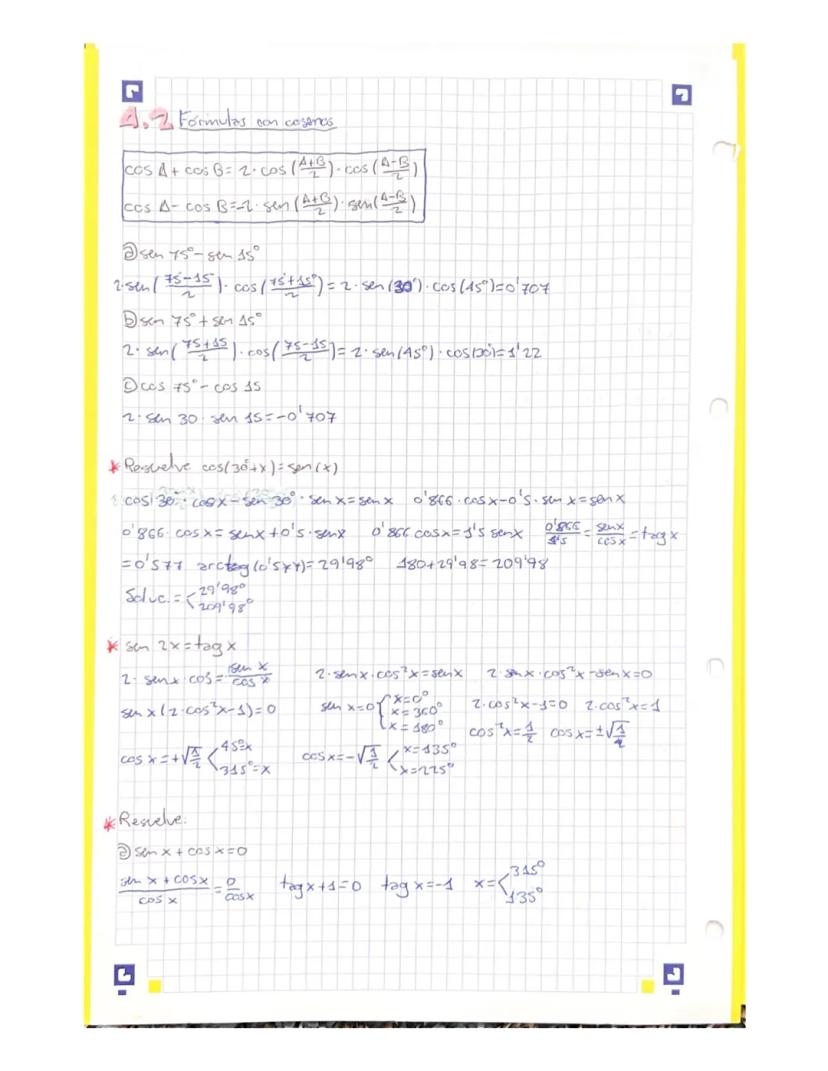 4.2 Fórmulas con cosenos
cos A + cos B = 2 · cos (A+B/2) · cos (A-B/2)
cos A - cos B = -2 · sen (A+B/2) · sen (A-B/2)
a) sen 75° - sen 15°
2·sen (75-15/2) · cos (75°+15°/2) = 2 · sen (30°) · cos (45°) = 0'707
b) sen 75° + sen 15°
2 · sen (75+15/2) · cos (75-15/2) = 2 · sen (45°) · cos (30) = 1'22
c) cos 75° - cos 15
2 · sen 30 · sen 45 = -0'707
* Resuelve cos (30°+x) = sen (x)
cos 30° · cos x - sen 30° · sen x = sen x 0'866 · cos x - 0'5 · sen x = sen x
0'866 · cos x = sen x + 0'5 · sen x 0'866 cos x = 1'5 sen x 0'866/1'5 = sen x/cos x = tag x
= 0'577 arctag (0'577) = 29'98° 180 + 29'98 = 209'98
Soluc. = < 29'98°
209'98°
* sen 2x = tag x
2 · sen x · cos = sen x/cos x 2 · sen x · cos²x = sen x 2 · sen x · cos²x - sen x = 0
sen x (2 · cos²x - 1) = 0 sen x = 0 { x = 0° x = 360° x = 180° 2 · cos²x - 1 = 0 2 · cos²x = 1
cos²x = 1/2 cos x = ±√1/2
cos x = +√1/2 < 45° = x 315° = x cos x = -√1/2 < x = 135° x = 225°
* Resuelve:
a) sen x + cos x = 0
sen x + cos x/cos x = 0/cos x tag x + 1 = 0 tag x = -1 x = < 315° 135°